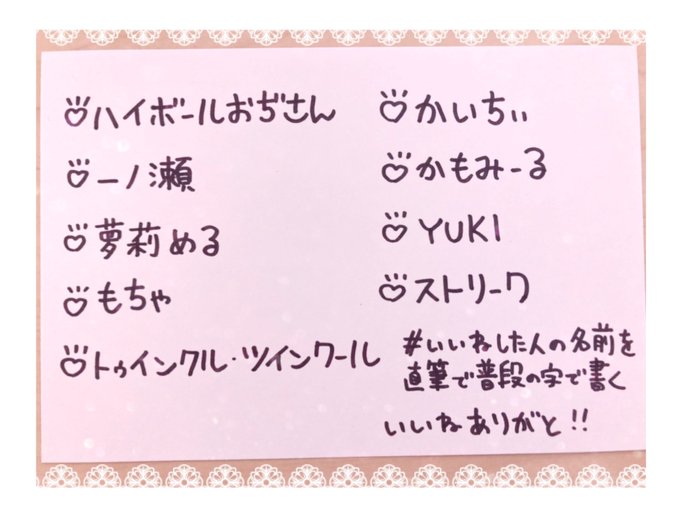 ハイボールおぢさん
一ノ瀬
萝莉める
もちゃ
トゥインクル・ツインワール
かいちぃ
かもみーる
YUKI
ストリーク
#いいねした人の名前を
直筆で普段の字で書く
いいねありがと!!